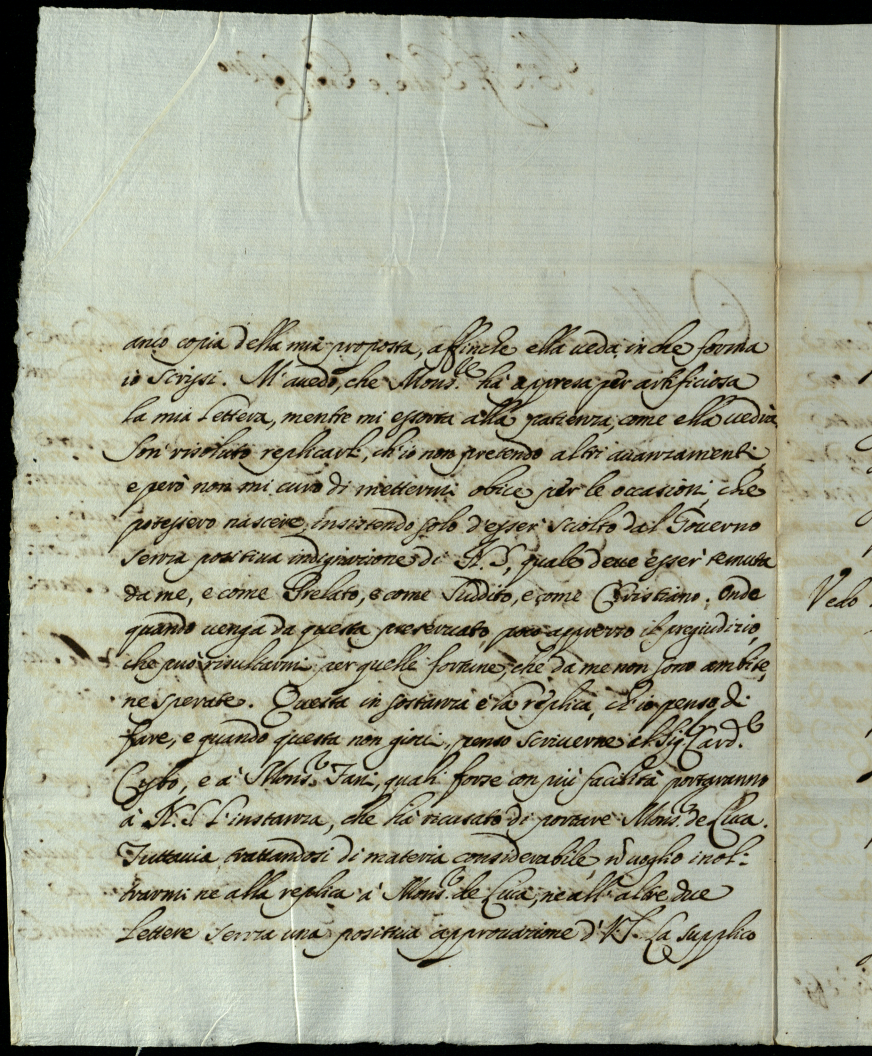 anco copia della mia proposta, affinche ella ueda in che forma
io scrissi. M'auedo, che Mons.re ha appresa per artificiosa
la mia Lettera, mentre mi essorta alla patienza, come ella uedrà
Son' risoluto replicarli, ch'io non pretendo altri auanzamenti,
e però non mi curo di mettermi obice per le occasioni, che
potessero nascere, insistendo solo d'esser sciolto dal Gouerno
senza positiua indignazione di N. S, quale deue esser temuta
da me, e come Prelato, e come Suddito, e come Christiano. Onde
quando uenga da questa preseruato, poco apprezzo il pregiudizio,
che può risultarmi per quelle fortune, che da me non sono ambite,
ne sperate. Questa in sostanza è la replica, ch'io penso di
fare, e quando questa non gioui, penso scriuerne al Sig.r Card.le
Cybo, e à Mons.r Fani, quali forse con più facilità portaranno
à N. S. l'instanza, che hà ricusato di portare Mons.r de Luca.
Tuttauia trattandosi di materia considerabile, nō uoglio inol-
trarmi ne alla replica à Mons.r de Luca, ne all'altre due
Lettere senza una positiua approuazione d'V.S. La supplico
Vedo